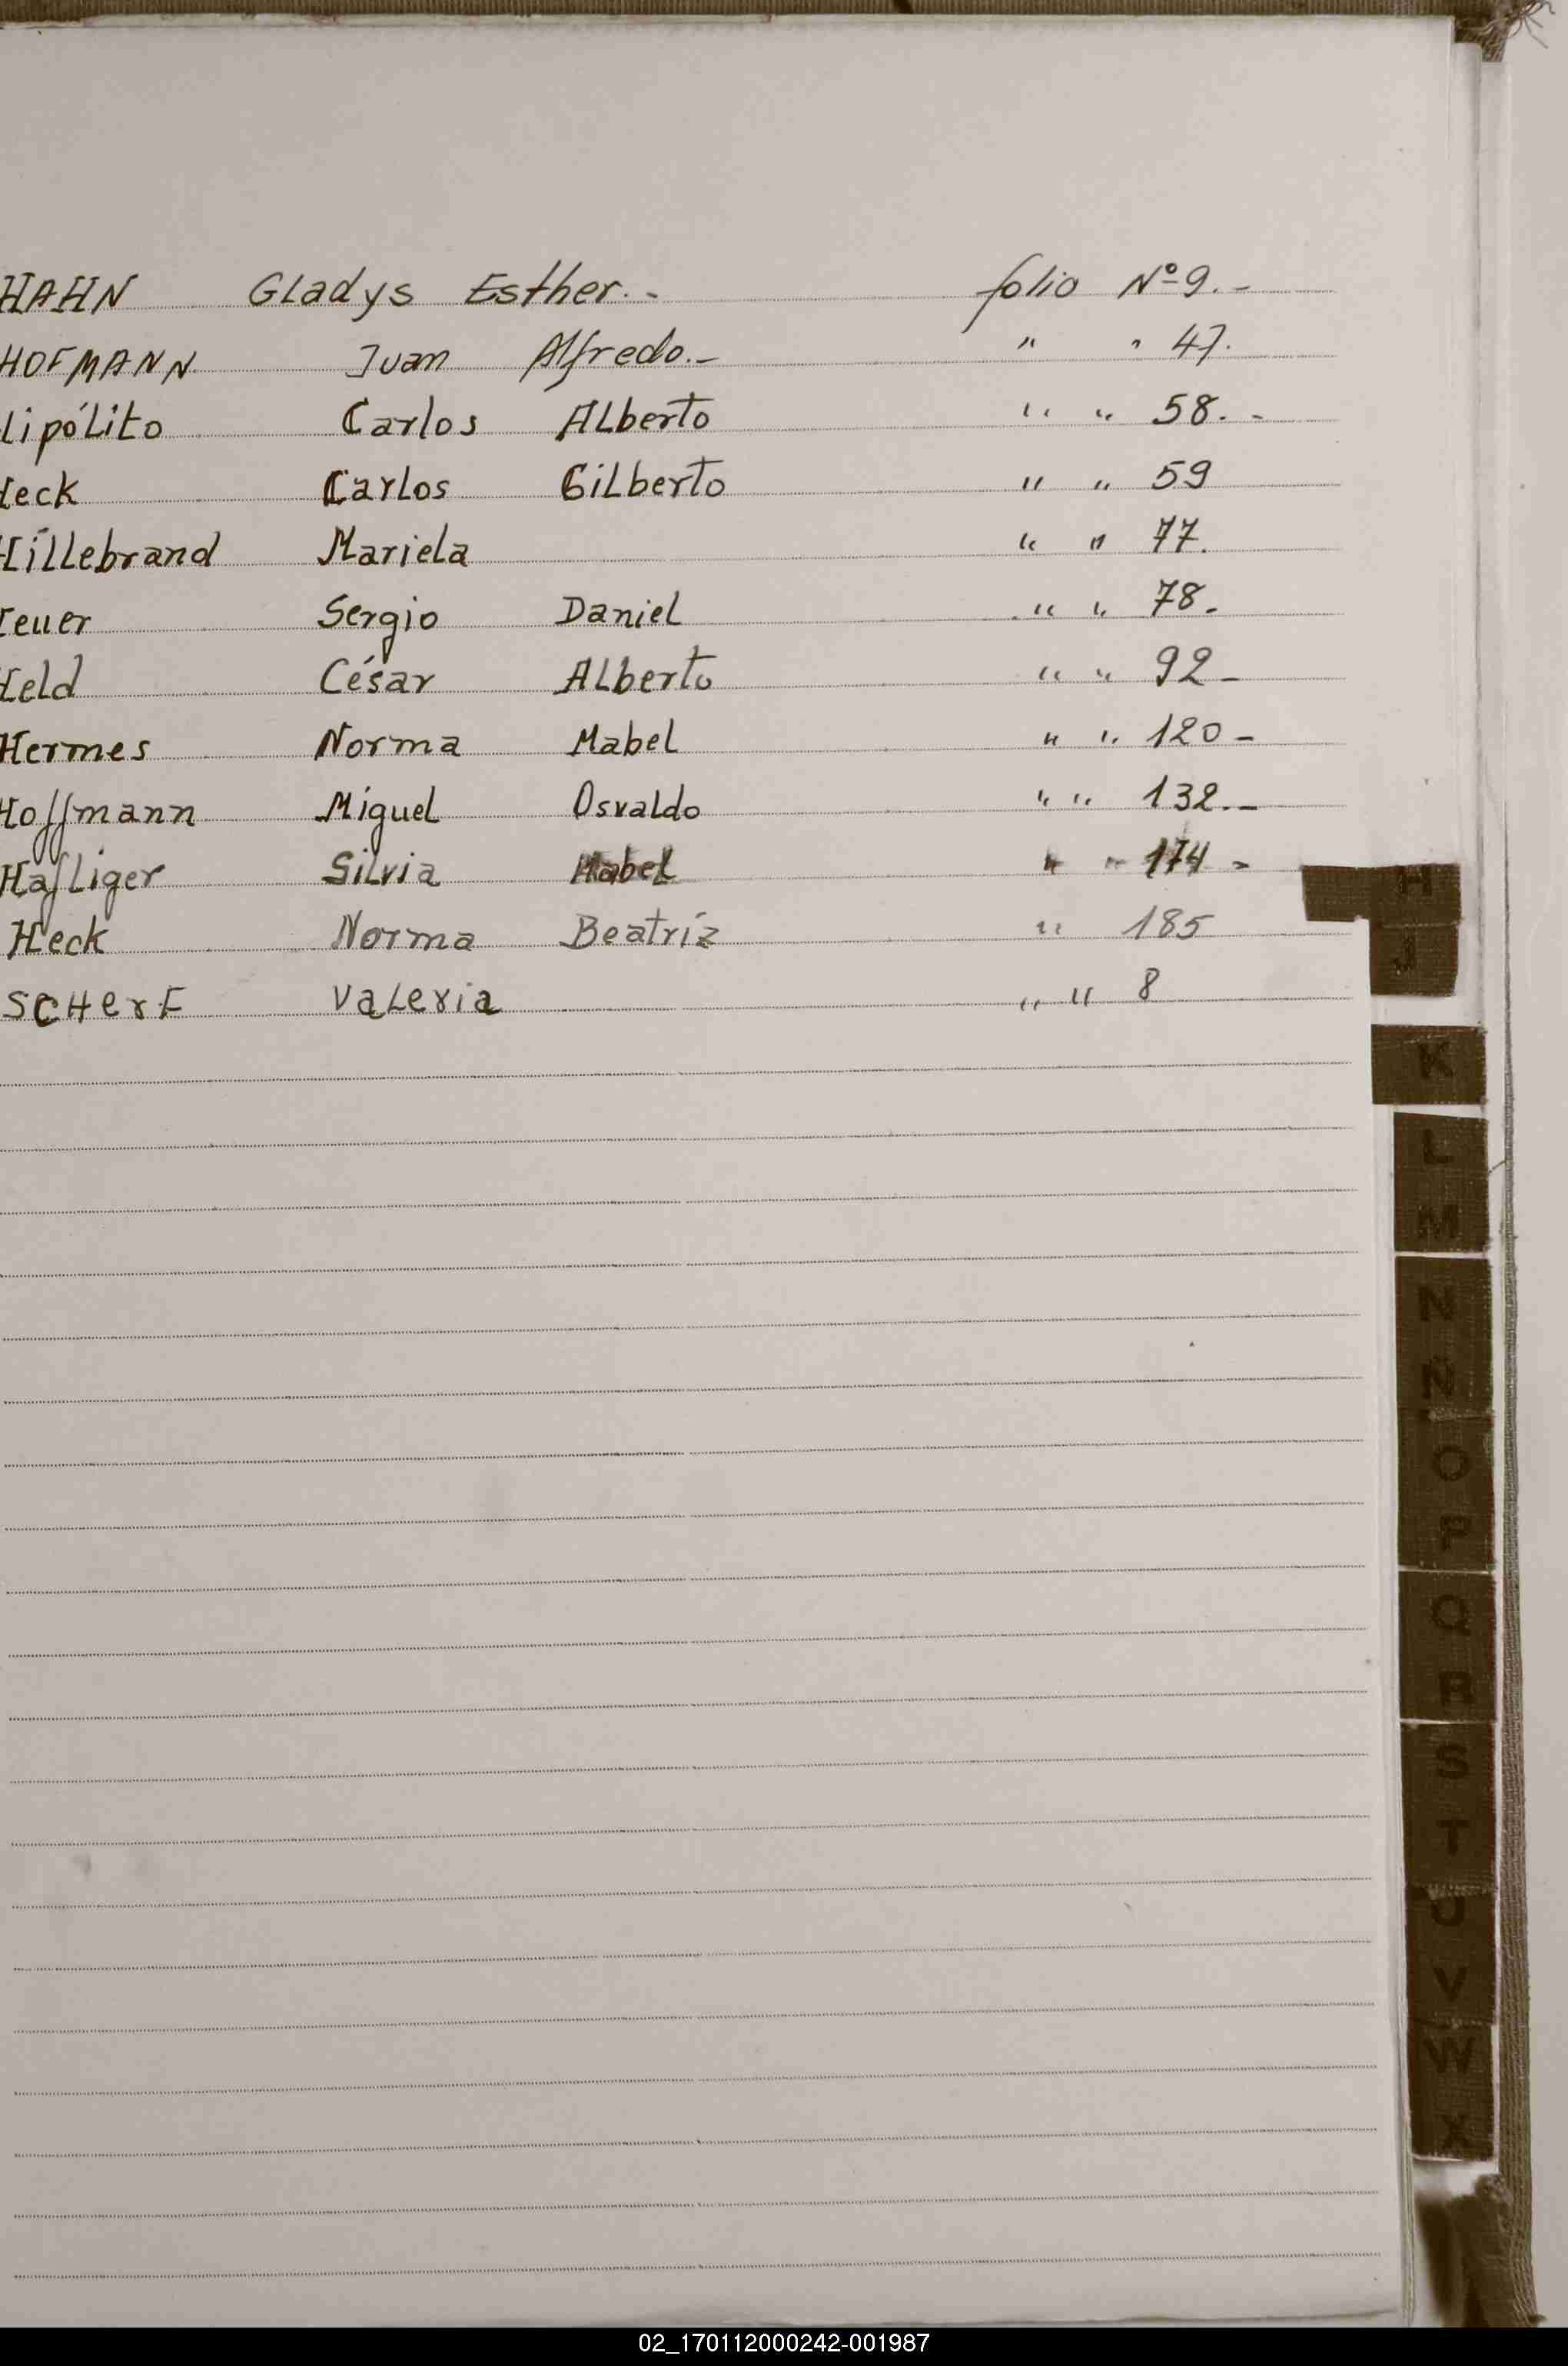 HAHN Gladys Esther.- folio Nº 9.-
HOFMANN Juan Alfredo.- " " 47.
Hipólito Carlos Alberto " " 58.-
Heck Carlos Gilberto " " 59
Hillebrand Mariela " " 77.
Heuer Sergio Daniel " " 78.
Held César Alberto " " 92-
Hermes Norma Mabel " " 120-
Hoffmann Miguel Osvaldo " " 132.-
Hafliger Silvia Mabel " " 174-
Heck Norma Beatriz " 185
SCHerF Valeria " " 8
H
J
K
L
M
N
Ñ
O
P
Q
R
S
T
U
V
W
X
02_170112000242-001987